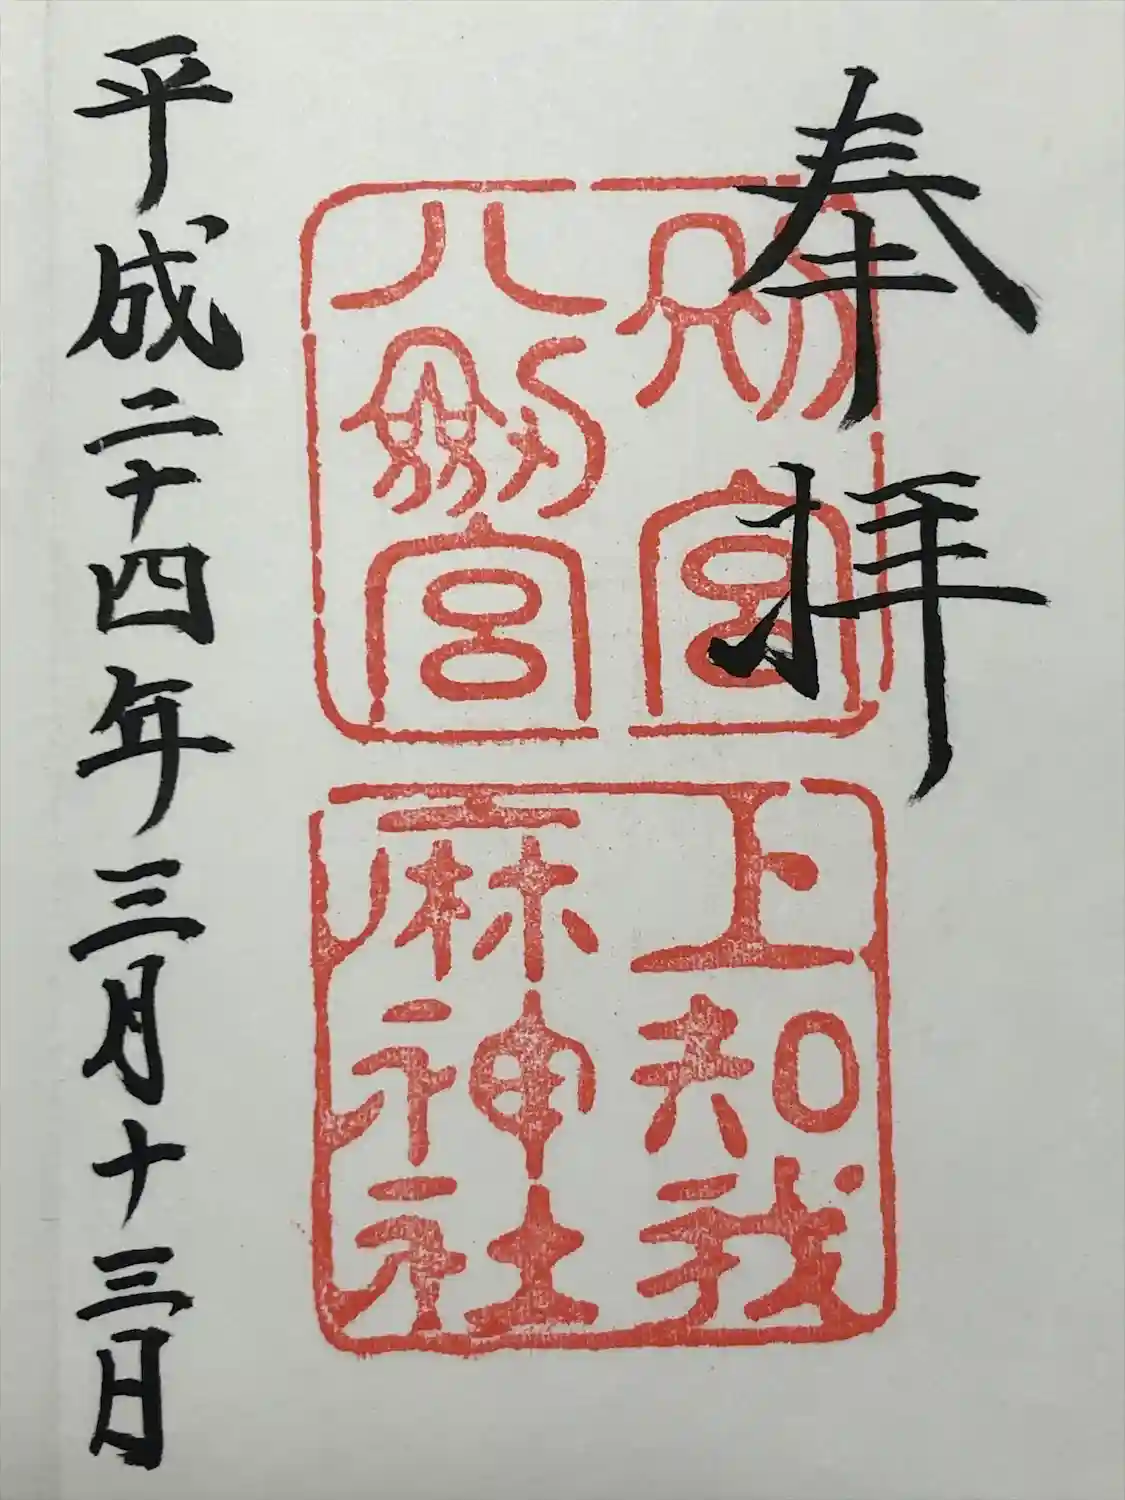 奉拝
別宮
八剱宮
上知我
麻神社
平成二十四年三月十三日